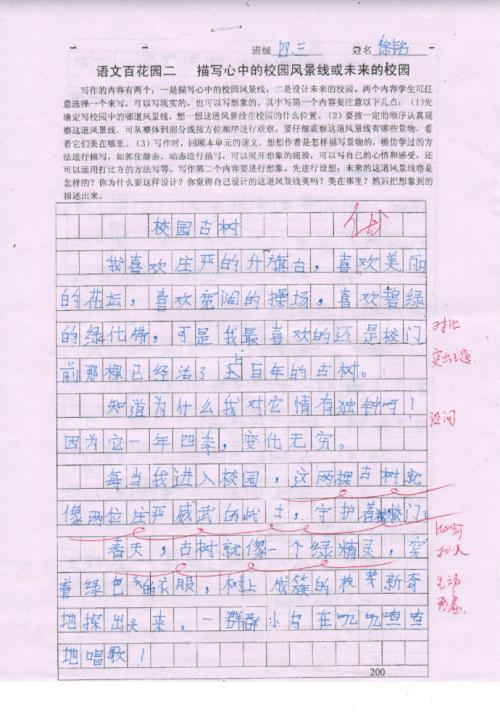 班级 四.三 姓名 徐铭
语文百花园二 描写心中的校园风景线或未来的校园
写作的内容有两个：一是描写心中的校园风景线，二是设计未来的校园。两个内容学生可任
意选择一个来写，可以写现实的，也可以写想象的，其中写第一个内容要注意以下几点：（1）先
确定写校园中的哪道风景线，想一想这道风景线在校园的什么位置。（2）要按一定的顺序认真观
察这道风景线，可从整体到部分或按方位顺序进行观察。要仔细观察这道风景线有哪些景物，看
看它们美在哪里。（3）写作时，回顾本单元的课文，想想作者是怎样描写景物的，模仿学过的方
法进行描写，如抓住静态、动态进行描写，可以展开想象的翅膀，可以写自己的心情和感受，还
可以运用打比方的方法写等。写作第二个内容要进行想象。先进行设想：未来的这道风景线将是
怎样的？你为什么要这样设计？你觉得自己设计的这道风景线美吗？美在哪里？然后把想象到的
描述出来。
校园古树
优
我喜欢庄严的升旗台，喜欢美丽
的花坛，喜欢宽阔的操场，喜欢碧绿
的绿化带，可是我最喜欢的还是校门
对比
前那棵已经活了上百年的古树。
突出主题
知道为什么我对它情有独钟吗！
设问
因为它一年四季，变化无穷。
每当我进入校园，这两棵古树就
像两位庄严威武的战士，守护着校门。
比喻
春天，古树就像一个绿精灵，穿
拟人
着绿色的衣服，树上成簇的枝芽新奇
生动
形象
地探出头来。一群群小鸟在叽叽喳喳
地唱歌！
200